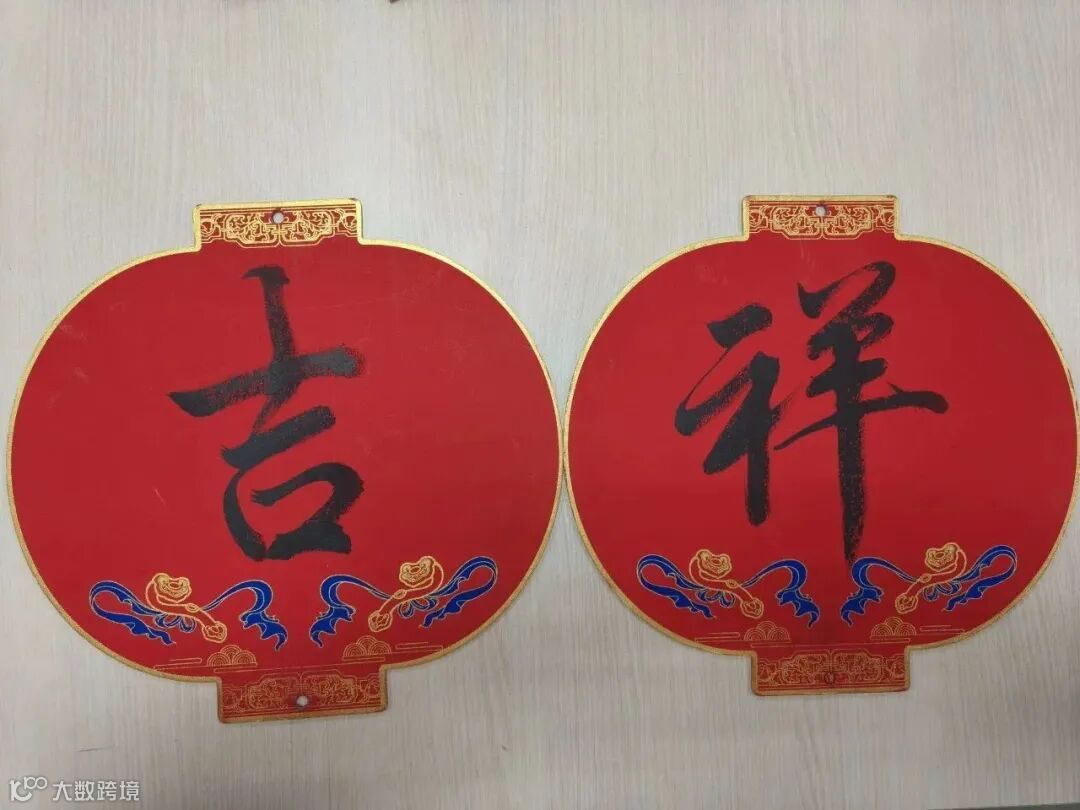 吉祥
大数跨境